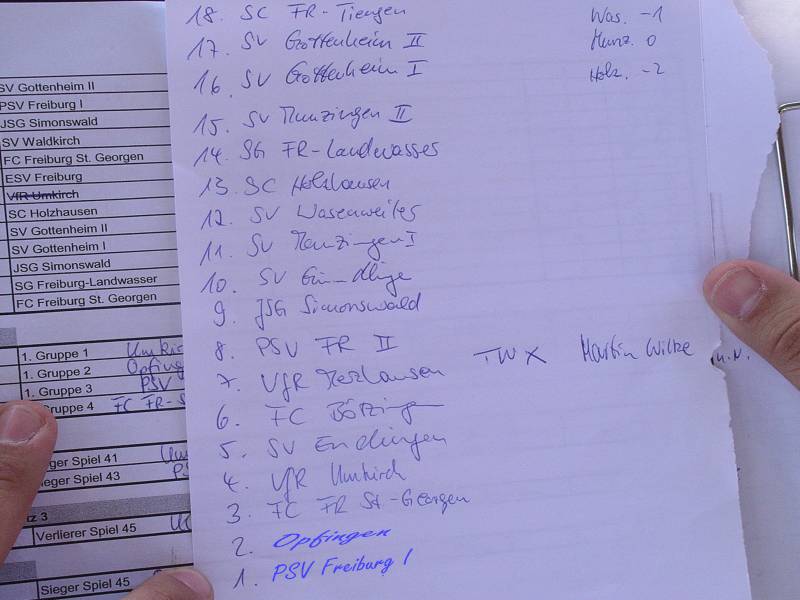 18. SC FR-Tiengen
17. SV Gottenheim II
16. SV Gottenheim I
15. SV Munzingen II
14. SG FR-Landwasser
13. SC Holzhausen
12. SV Wasenweiler
11. SV Munzingen I
10. SV Gündlinge
9. JSG Simonswald
8. PSV FR II
7. VfR Merzhausen TW X Martin Wilke u.N.
6. FC Bötzingen
5. SV Endingen
4. VfR Umkirch
3. FC FR St.-Georgen
2. Opfingen
1. PSV Freiburg I
Was. -1
Munz. 0
Holz. -2
SV Gottenheim II
PSV Freiburg I
JSG Simonswald
SV Waldkirch
FC Freiburg St. Georgen
ESV Freiburg
VfR Umkirch
SC Holzhausen
SV Gottenheim II
SV Gottenheim I
JSG Simonswald
SG Freiburg-Landwasser
FC Freiburg St. Georgen
1. Gruppe 1 Umkirc
1. Gruppe 2 Opfing
1. Gruppe 3 PSV
Gruppe 4 FC FR-S
ger Spiel 41 Um
ieger Spiel 43 PS
tz 3
Verlierer Spiel 45
Sieger Spiel 45